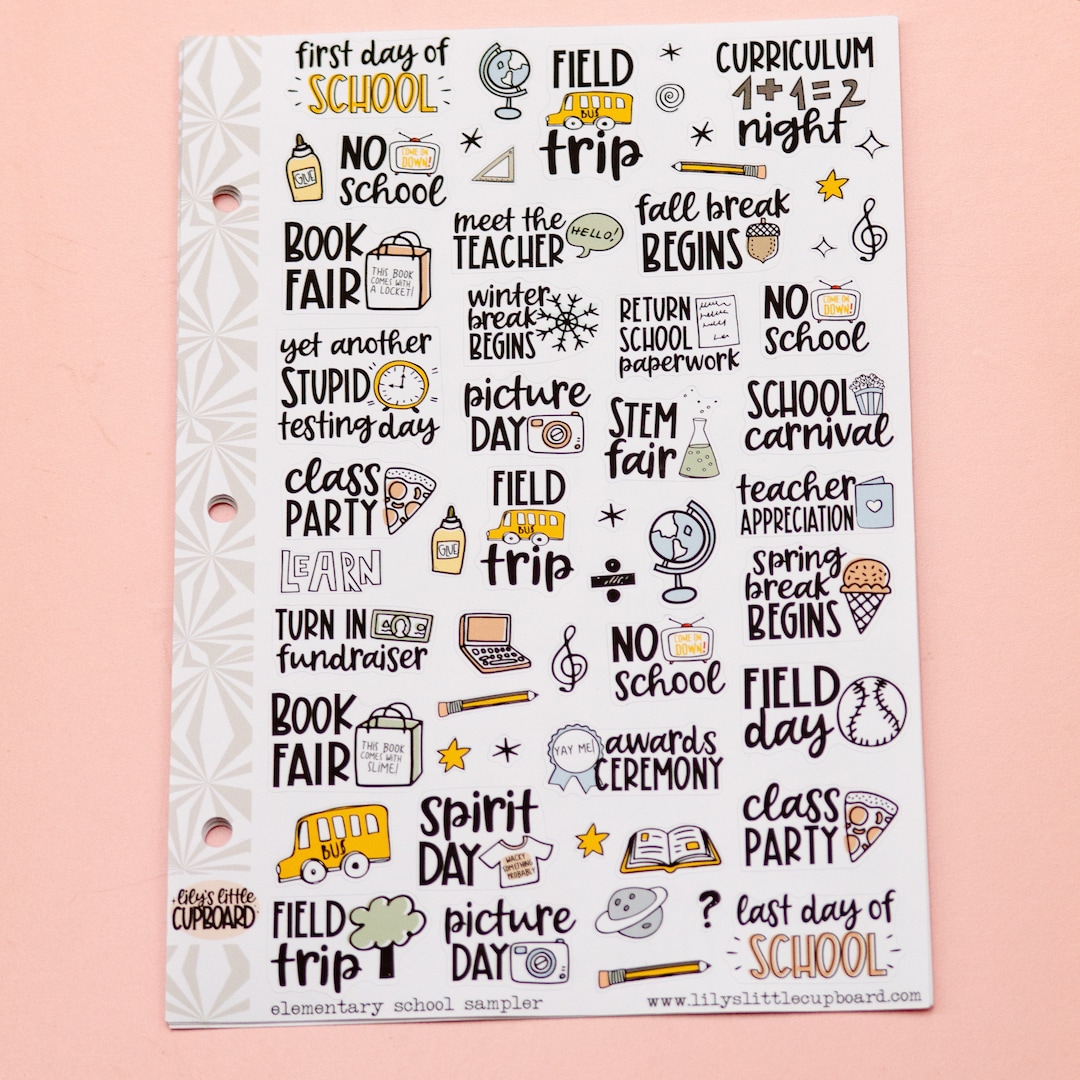 first day of
SCHOOL
FIELD
BUS
trip
CURRICULUM
1+1=2
night
GLUE
NO
COME ON
DOWN!
school
BOOK
FAIR
THIS BOOK
COMES WITH
A LOCKET!
meet the
TEACHER
HELLO!
fall break
BEGINS
winter
break
BEGINS
RETURN
SCHOOL
paperwork
NO
COME ON
DOWN!
school
yet another
STUPID
testing day
picture
DAY
STEM
fair
SCHOOL
carnival
class
PARTY
GLUE
FIELD
BUS
trip
÷
teacher
APPRECIATION
LEARN
spring
break
BEGINS
TURN IN
fundraiser
NO
COME ON
DOWN!
school
FIELD
day
BOOK
FAIR
THIS BOOK
COMES WITH
SLIME!
YAY ME!
awards
CEREMONY
BUS
spirit
DAY
WACKY
SOMETHING
PROBABLY
class
PARTY
lily's little
CUPBOARD
FIELD
trip
picture
DAY
?
last day of
SCHOOL
elementary school sampler
www.lilyslittlecupboard.com